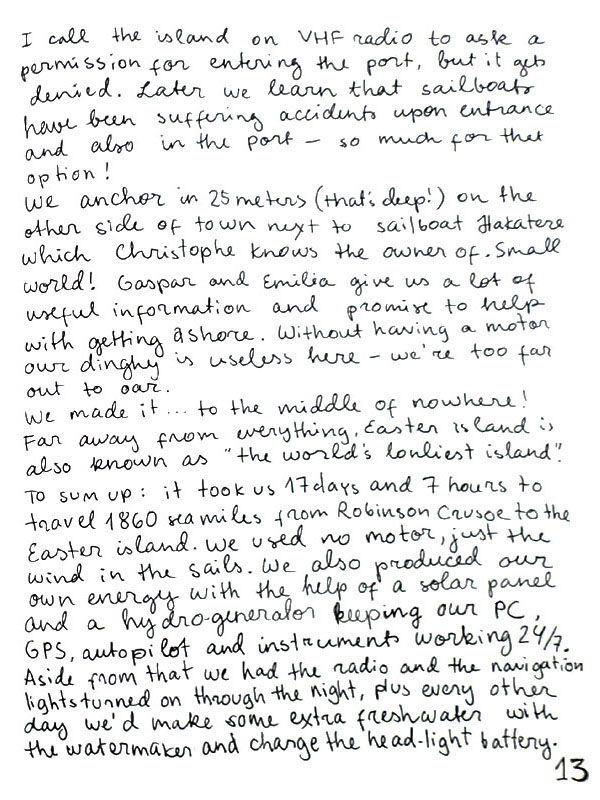 I call the island on VHF radio to ask a
permission for entering the port, but it gets
denied. Later we learn that sailboats
have been suffering accidents upon entrance
and also in the port – so much for that
option!
We anchor in 25 meters (that's deep!) on the
other side of town next to sailboat Hakatere
which Christophe knows the owner of. Small
world! Gaspar and Emilia give us a lot of
useful information and promise to help
with getting ashore. Without having a motor
our dinghy is useless here – we're too far
out to oar.
We made it... to the middle of nowhere!
Far away from everything, Easter island is
also known as "the world's lonliest island".
To sum up: it took us 17 days and 7 hours to
travel 1860 sea miles from Robinson Crusoe to the
Easter island. We used no motor, just the
wind in the sails. We also produced our
own energy with the help of a solar panel
and a hydro-generator keeping our PC,
GPS, autopilot and instruments working 24/7.
Aside from that we had the radio and the navigation
lights turned on through the night, plus every other
day we'd make some extra freshwater with
the watermaker and change the head-light battery.
13